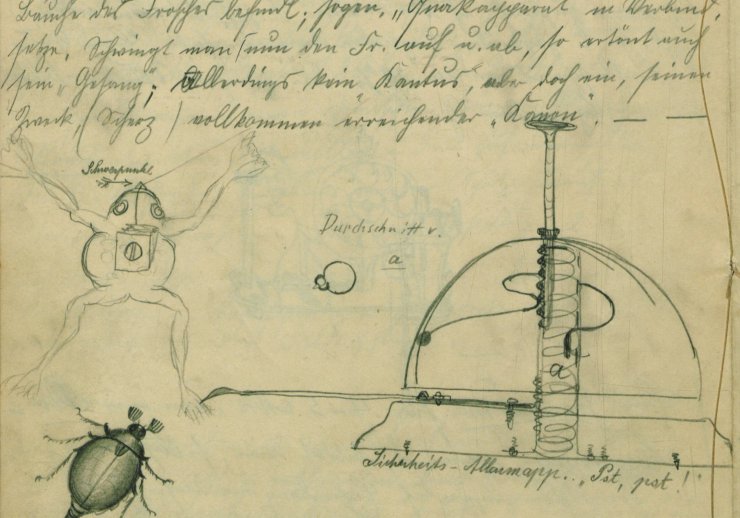 Bauche des Frosches befindl., sogen. „Quakapparat" in Verbind.
setze. Schwingt man nun den Fr. auf u. ab, so ertönt auch
sein „Gesang"; Allerdings kein „Kantus", aber doch ein, seinen
Zweck, (Scherz) vollkommen erreichender „Kanon". — —
Schwerpunkt
Durchschnitt v.
a
a
Sicherheits-Allarmapp. „Pst, pst!"